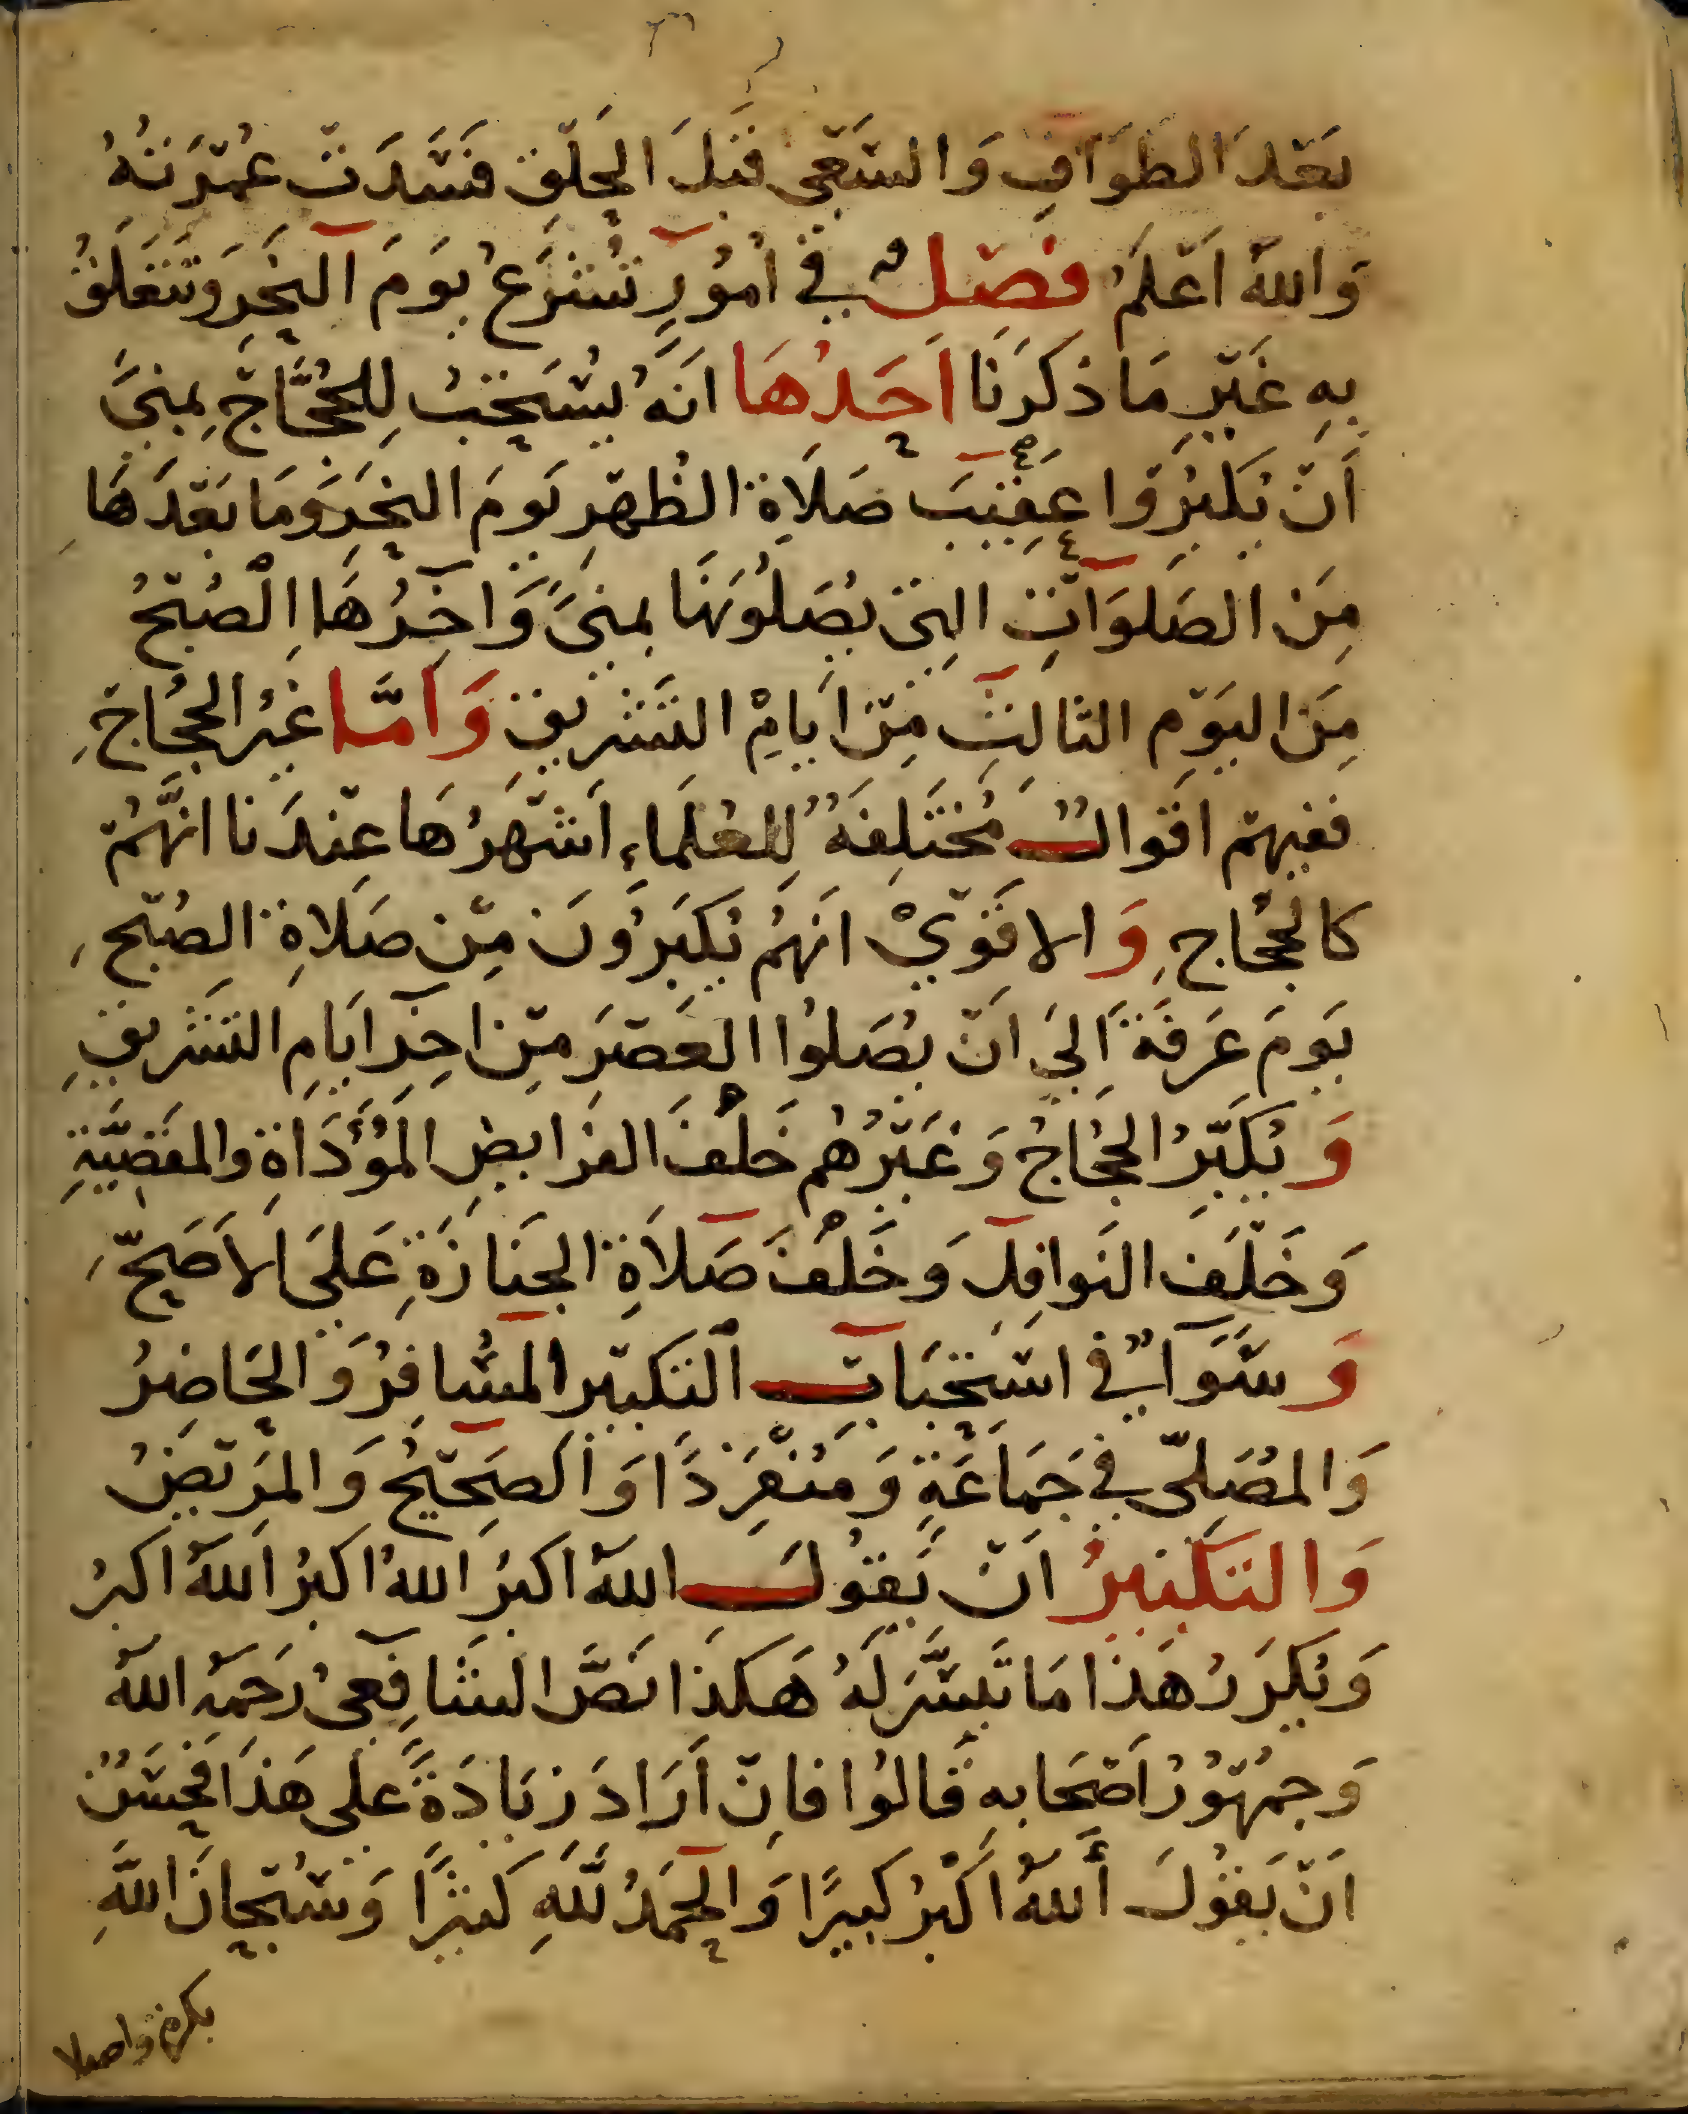 بَعْدَ الطَوَافِ وَالسَّعْي قَبْلَ الحَلْقِ فَسَدَتْ عُمْرَتهُ
وَاللهُ اَعْلَمُ فصْلٌ في اُمُورٍ تُشْرَعُ يَوَمَ النَحَرِ وَتَتَعَلَقُ
بِهِ غَيْرِ مَا ذَكَرَنَا اَحَدُهَا انَهُ يُسَتَحَبُ لِلحُجَّاجِ بِمِنَى
اَنْ يُكَبِرُوا عَقِيبَ صَلَاةِ الظُهْرِ يَومَ النَحَرِ وَمَا بَعْدَهَا
مِنَ الصَلَوَاتِ التي يُصَلُونَهَا بمِنىً وَاخِرُهَا الْصُبْحُ
مِنَ اليَوْمِ الثالثِ مِنْ ايَامِ التَشَرِيقِ وَامَّا غَيْرُ الحجُاجِ
ففيهمْ اقوالٌ مُخْتَلِفَةٌ لِلعُلَمَاءِ اَشْهَرُهَا عِنْدَنا انَّهُمْ
كالحجُاجِ وَالاقَوْيْ انَهُمْ يُكَبِرُونَ مِنْ صَلَاةِ الصُبْحِ
يَومَ عَرَفَةَ اِلَي اَنْ يُصَلوُا العَصْرَ مِنْ اخِرِ ايَامِ التَشَريقِ
وَيُكَبِّرُ الحجُاجُ وَغَيْرُهُم خَلْفَ الفرَايضِ المؤَدَاةِ والمقضِيَّةِ
وَخَلْفَ النَوافِل وَخَلْفَ صَلَاةِ الجَنَازَةِ عَلَى الاَصَحِّ
وَسَوَاٌ في اسْتِحْبَابِ التكبيْر المسُافِرُ وَالحَاضِرُ
وَالمصَلّي في جَمَاعَةٍ وَمُنْفَرِدًا وَالصَحِيْحُ وَالمرَيْضُ
وَالتَكْبِيرُ انْ يَقوُلَ اللهُ اكبَرُ اللهُ اكبَرُ اللهُ اكبَرُ
وَيُكَرِرُ هَذَا مَا تَيَسَّرَ لَهُ هَكذَا نَصَّ الشَافِعيُ رَحَمَهُ اللهُ
وَجمْهُوُرُ اَصْحَابهِ قَالوُا فانْ اَرَادَ زيَادَةً عَلى هَذَا فَحَسَنٌ
انْ يَقوُلَ اَللهُ اَكْبَرُ كبيرًا وَالحَمَدُ لِلَّهِ كثيرًا وَسُبْحَانَ اللَّهِ
بكرة واصيلا